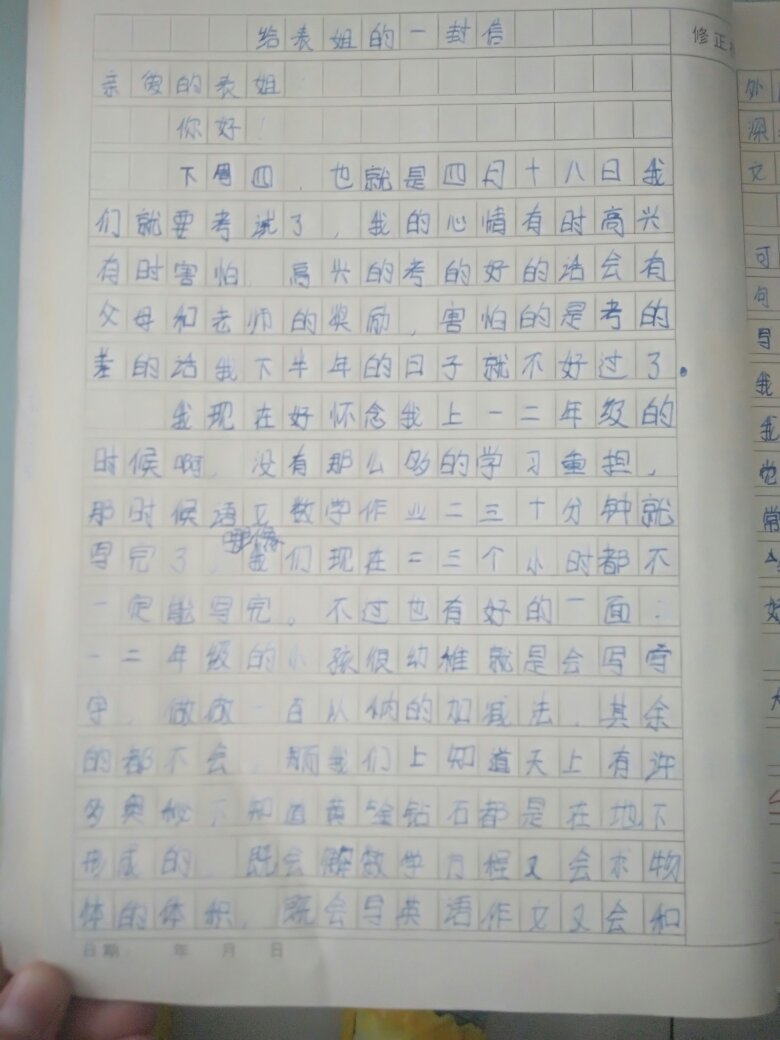 给表姐的一封信
修正
亲爱的表姐
你好！
下周四，也就是四月十八日我
们就要考试了，我的心情有时高兴
有时害怕，高兴的考的好的话会有
父母和老师的奖励，害怕的是考的
差的话我下半年的日子就不好过了。
我现在好怀念我上一二年级的
时候啊，没有那么多的学习重担，
那时候语文数学作业二三十分钟就
写完了，哪像我们现在二三个小时都不
一定能写完。不过也有好的一面：
一二年级的小孩很幼稚就是会写写
字，做做一百以内的加减法，其余
的都不会，而我们上知道天上有许
多奥秘下知道黄金钻石都是在地下
形成的，既会解数学方程又会求物
体的体积，既会写英语作文又会和
日期： 年 月 日
外
深
文
可
句
写
我
我
觉
常
好